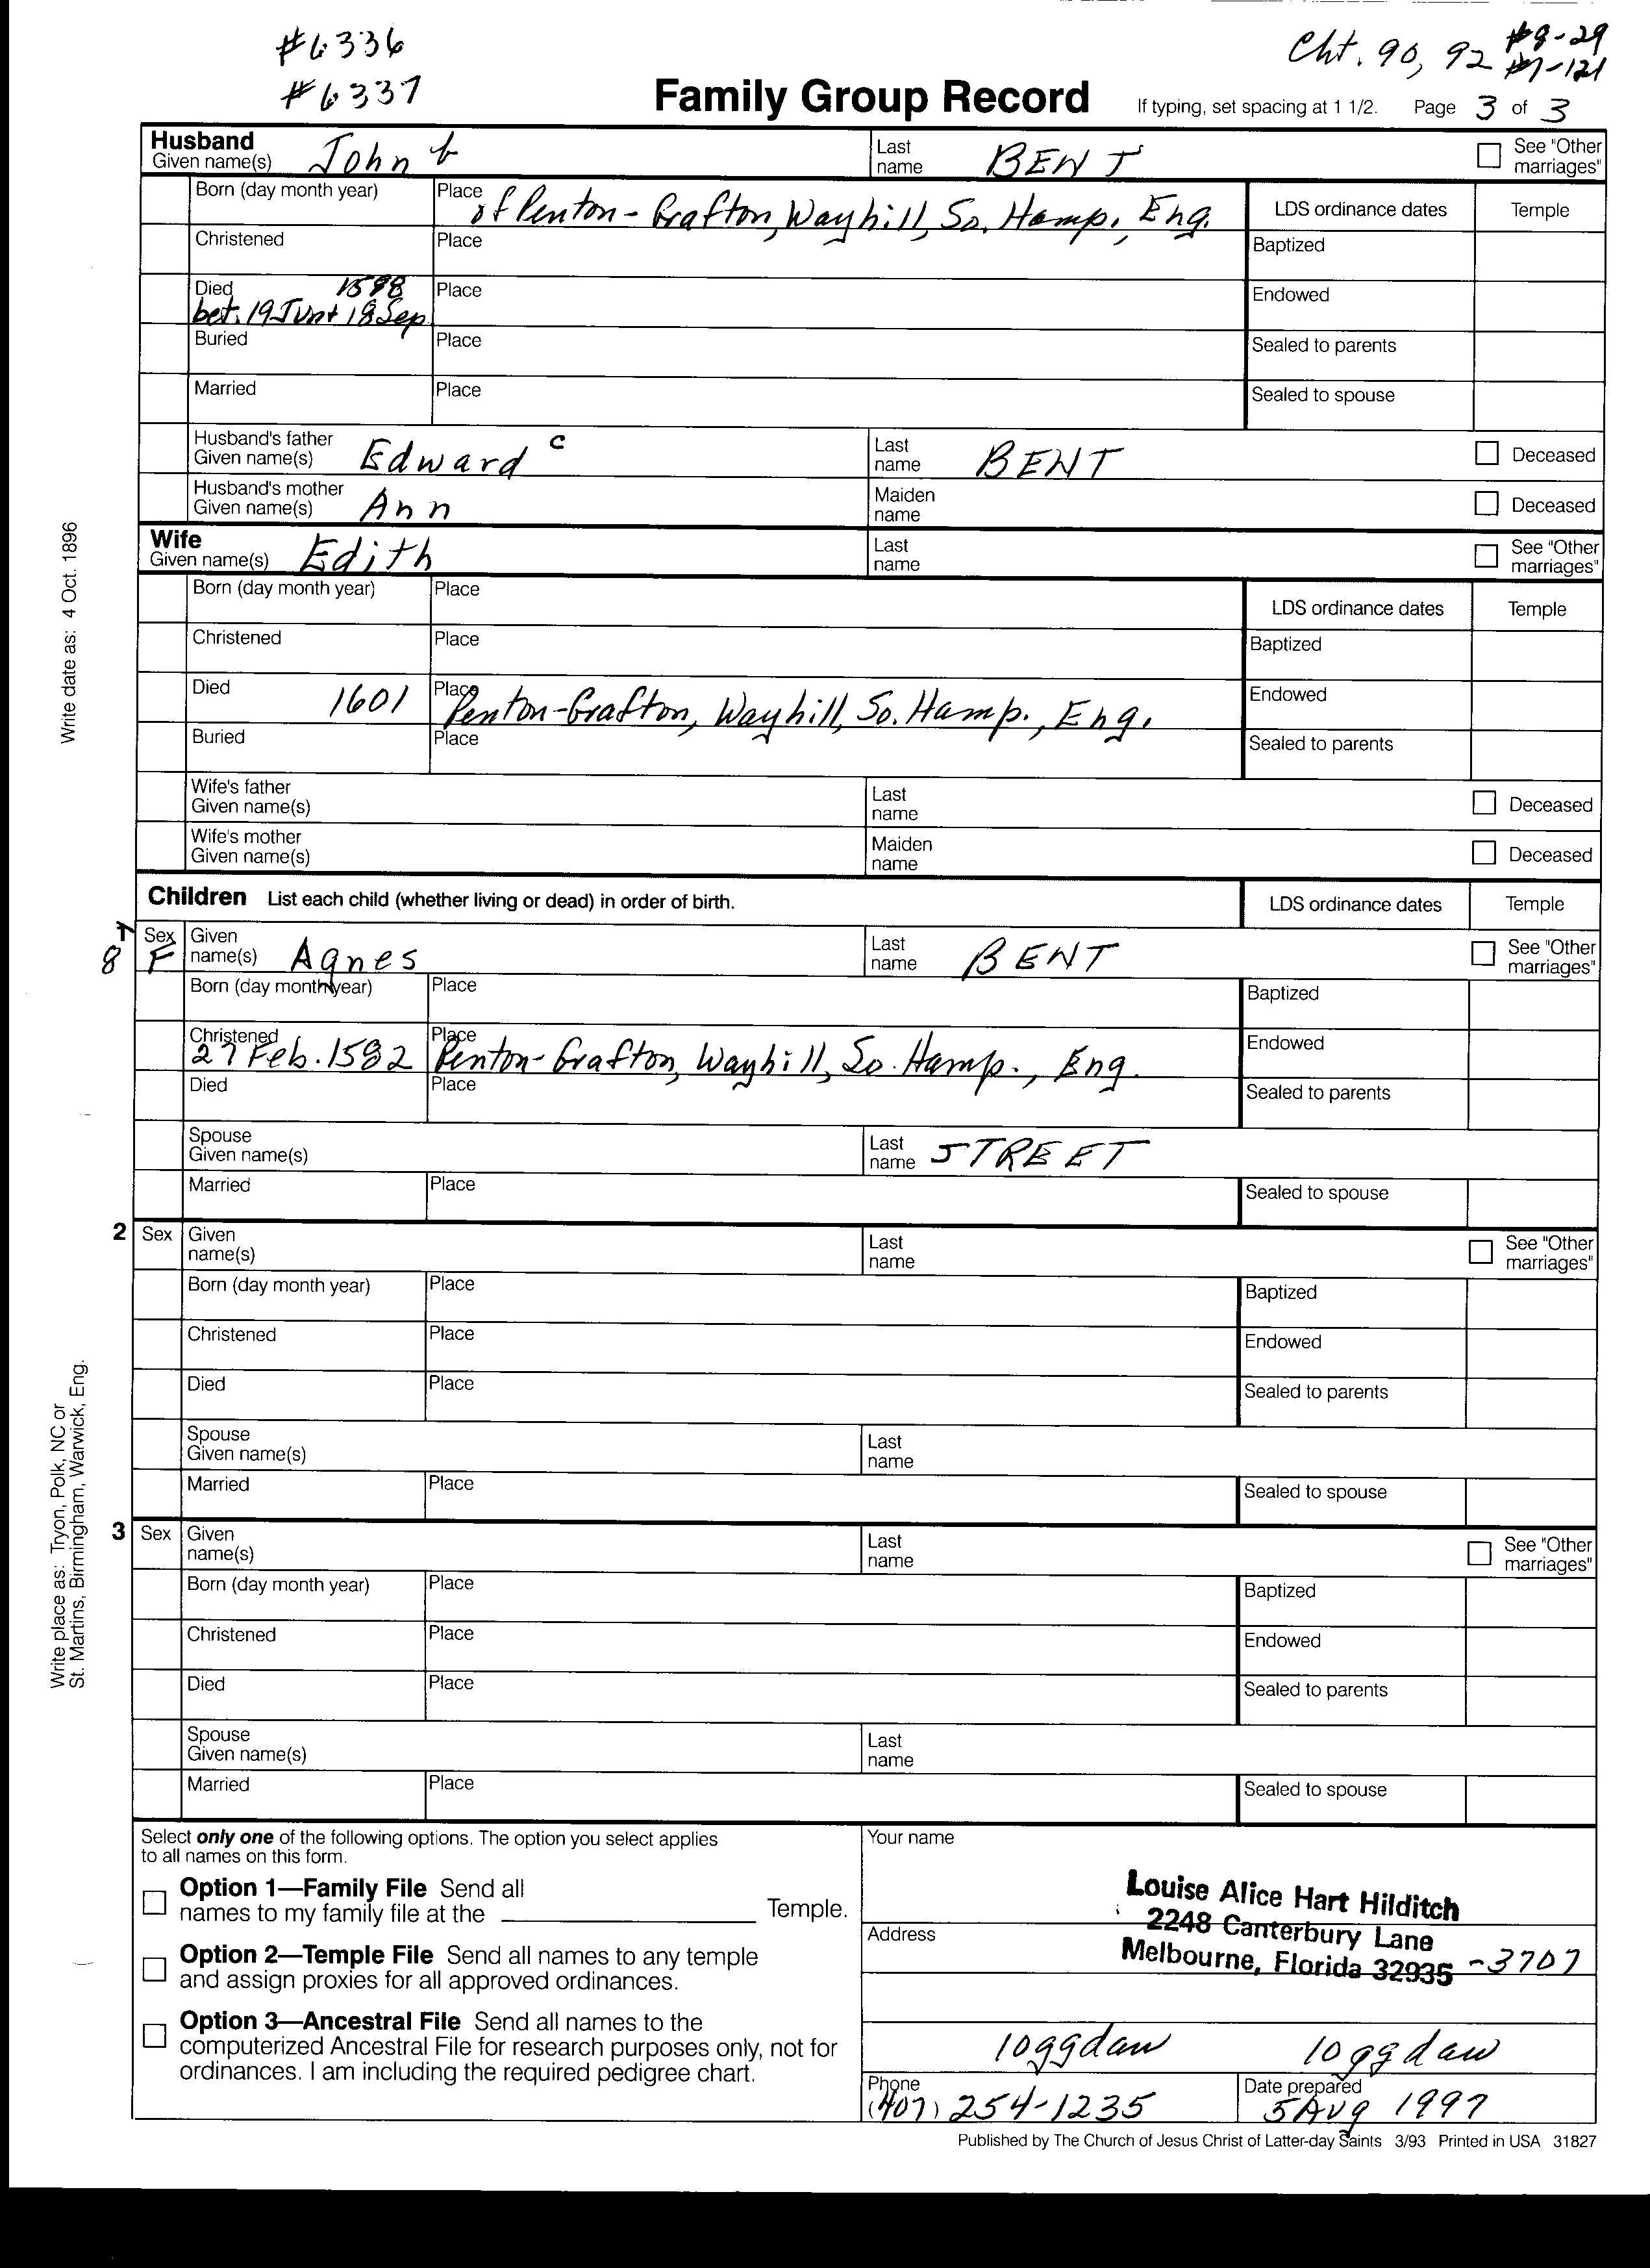 #6336
#6337
Cht. 90, 92 #8-29
#1-121
Family Group Record
If typing, set spacing at 1 1/2. Page 3 of 3
Husband
Given name(s) John b
Last name BENT
See "Other marriages"
Born (day month year)
Place of Penton-Grafton, Wayhill, So. Hamp., Eng.
LDS ordinance dates
Temple
Christened
Place
Baptized
Died 1598
bet. 19 Jun + 18 Sep
Place
Endowed
Buried
Place
Sealed to parents
Married
Place
Sealed to spouse
Husband's father
Given name(s) Edward c
Last name BENT
Deceased
Husband's mother
Given name(s) Ann
Maiden name
Deceased
Wife
Given name(s) Edith
Last name
See "Other marriages"
Born (day month year)
Place
LDS ordinance dates
Temple
Christened
Place
Baptized
Died 1601
Place Penton-Grafton, Wayhill, So. Hamp., Eng.
Endowed
Buried
Place
Sealed to parents
Wife's father
Given name(s)
Last name
Deceased
Wife's mother
Given name(s)
Maiden name
Deceased
Children List each child (whether living or dead) in order of birth.
LDS ordinance dates
Temple
8
Sex F
Given name(s) Agnes
Last name BENT
See "Other marriages"
Born (day month year)
Place
Baptized
Christened 27 Feb. 1582
Place Penton-Grafton, Wayhill, So. Hamp., Eng.
Endowed
Died
Place
Sealed to parents
Spouse
Given name(s)
Last name STREET
Married
Place
Sealed to spouse
2 Sex
Given name(s)
Last name
See "Other marriages"
Born (day month year)
Place
Baptized
Christened
Place
Endowed
Died
Place
Sealed to parents
Spouse
Given name(s)
Last name
Married
Place
Sealed to spouse
3 Sex
Given name(s)
Last name
See "Other marriages"
Born (day month year)
Place
Baptized
Christened
Place
Endowed
Died
Place
Sealed to parents
Spouse
Given name(s)
Last name
Married
Place
Sealed to spouse
Select only one of the following options. The option you select applies
to all names on this form.
Option 1—Family File Send all
names to my family file at the Temple.
Option 2—Temple File Send all names to any temple
and assign proxies for all approved ordinances.
Option 3—Ancestral File Send all names to the
computerized Ancestral File for research purposes only, not for
ordinances. I am including the required pedigree chart.
Your name
Louise Alice Hart Hilditch
Address
2248 Canterbury Lane
Melbourne, Florida 32935 -3707
10ggdaw 10ggdaw
Phone
(407) 254-1235
Date prepared
5 Aug 1997
Published by The Church of Jesus Christ of Latter-day Saints 3/93 Printed in USA 31827
Write date as: 4 Oct. 1896
Write place as: Tryon, Polk, NC or
St. Martins, Birmingham, Warwick, Eng.